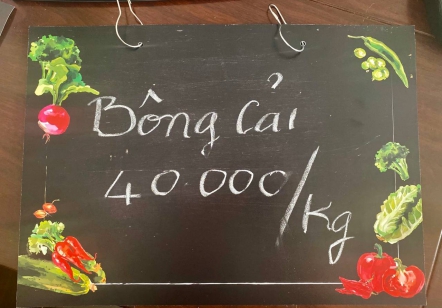 Bông Cải
40.000/Kg